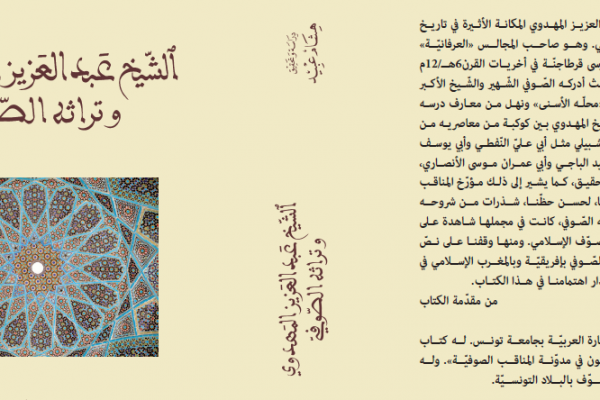 الشّيخ عبد العزيز
وتراثه الصّ
هشام عبيد
دراسة وتحقيق
الشّيخ عبد العزيز المهدوي
وتراثه الصّوفيّ
العزيـز المهـدوي المكانـة الأثيـرة في تاريـخ
ي. وهـو صاحـب المجالـس «العرفانيّـة»
سى قرطاجنّـة في أخريـات القرن6هـ/12م
ث أدركـه الصّوفي الشّهير والشّيخ الأكبر
«محلّـه الأسنى» ونهـل مـن معـارف درسه
خ المهـدوي بـين كوكبـة مـن معاصريـه مـن
شبيلي مثـل أبي عليّ النّفطـي وأبي يوسـف
يد الباجـي وأبي عمـران مـوسى الأنصاري،
حقيق، كـما يشـير إلى ذلـك مـؤرّخ المناقـب
ا، لحسـن حظّنـا، شـذرات مـن شروحـه
ه الصّـوفي، كانـت في مجملهـا شـاهدة عـلى
صـوّف الإسـلامي. ومنهـا وقفنـا عـلى نـصّ
لصّوفي بإفريقيّة وبالمغـرب الإسـلامي في
دار اهتمامنـا في هـذا الكتـاب.
من مقدّمة الكتاب
ضارة العربيّـة بجامعـة تونـس. لـه كتـاب
ون في مدوّنـة المناقـب الصوفيّـة». ولـه
وّف بالبلاد التونسيّـة.